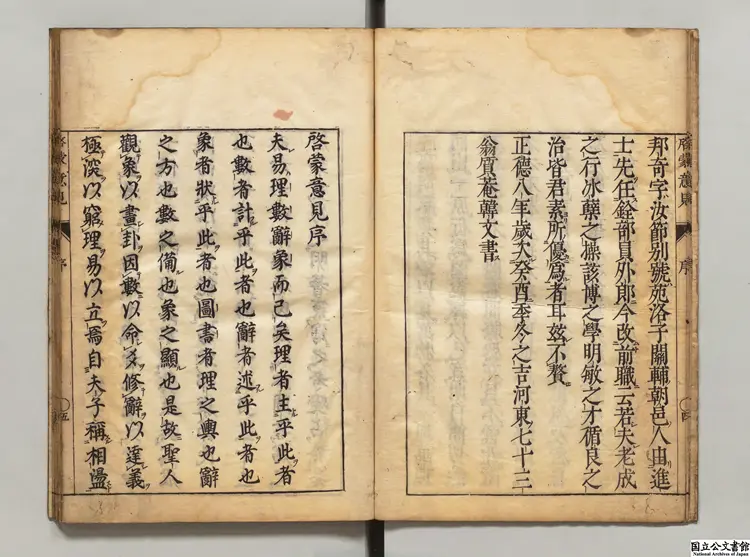 邦奇字汝節別號苑洛子關輔朝邑人由進
士先任銓部員外郎今改前職云若夫老成
之行冰櫱之操該博之學明敏之才循良之
治皆君素所優爲者耳玆不贅
正德八年歲次癸酉季冬之吉河東七十三
翁質菴韓文書
啓蒙意見 序 四
啓蒙意見序
夫易理數辭象而已矣理者主乎此者
也數者計乎此者也辭者述乎此者也
象者狀乎此者也圖書者理之輿也辭
之方也數之備也象之顯也是故聖人
觀象以畫卦因數以命爻修辭以達義
極深以窮理易以立焉自夫子稱相盪
啓蒙意見 序 五
国立公文書館
National Archives of Japan